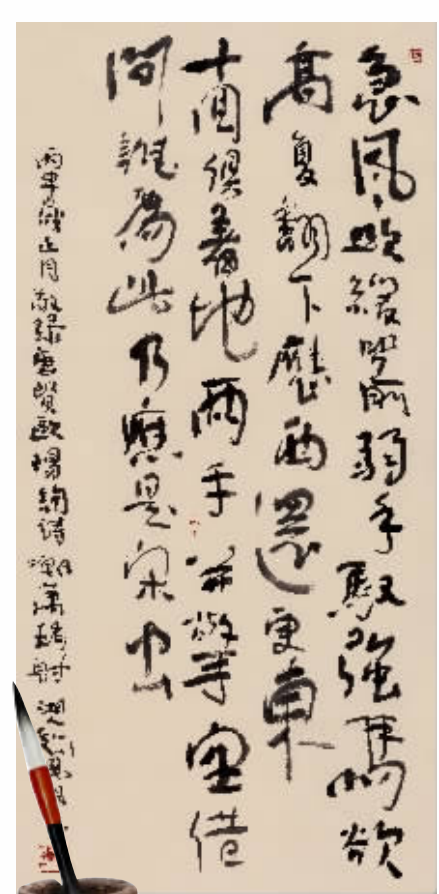 急風吹緩箭弱手馭強馬欲
高复翻下應西還更東
十回俱著地兩手并擎空借
問誰為此乃應是宋公
丙申歲正月敬錄唐賢歐陽詢詩嘲蕭瑀射